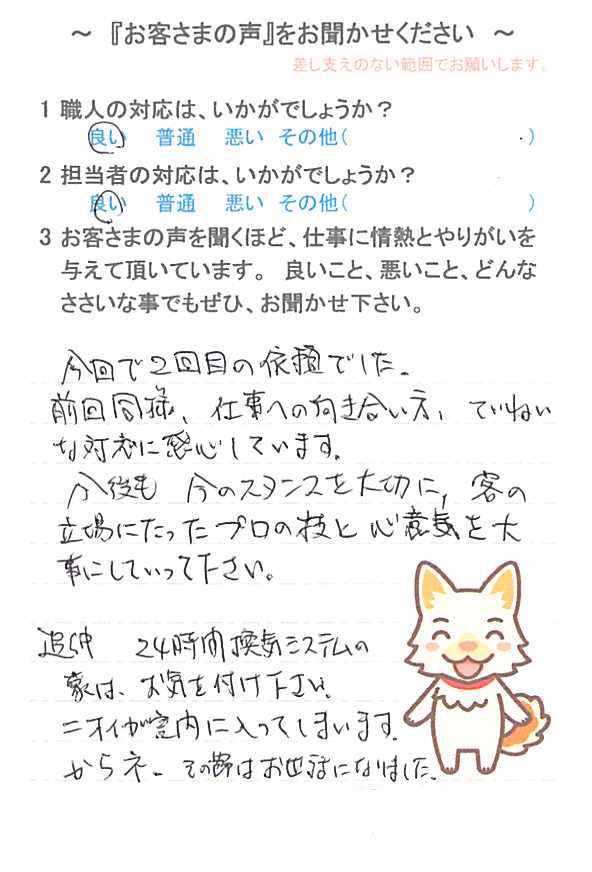 ～ 『お客さまの声』をお聞かせください ～
差し支えのない範囲でお願いします。
1 職人の対応は、いかがでしょうか？
良い 普通 悪い その他( )
2 担当者の対応は、いかがでしょうか？
良い 普通 悪い その他( )
3 お客さまの声を聞くほど、仕事に情熱とやりがいを
与えて頂いています。 良いこと、悪いこと、どんな
ささいな事でもぜひ、お聞かせ下さい。
今回で2回目の依頼でした。
前回同様、仕事への向き合い方、ていねい
な対応に感心しています。
今後も 今のスタンスを大切に、客の
立場にたったプロの技と心意気を大
事にしていって下さい。
追伸 24時間換気システムの
家は、お気を付け下さい。
ニオイが室内に入ってしまいます。
からネ。その節はお世話になりました。